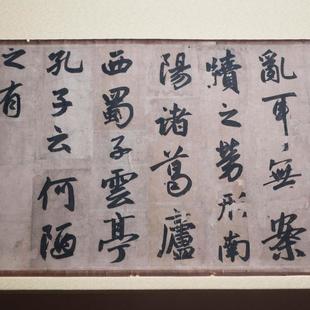 亂耳無案
牘之勞形南
陽諸葛廬
西蜀子雲亭
孔子云何陋
之有